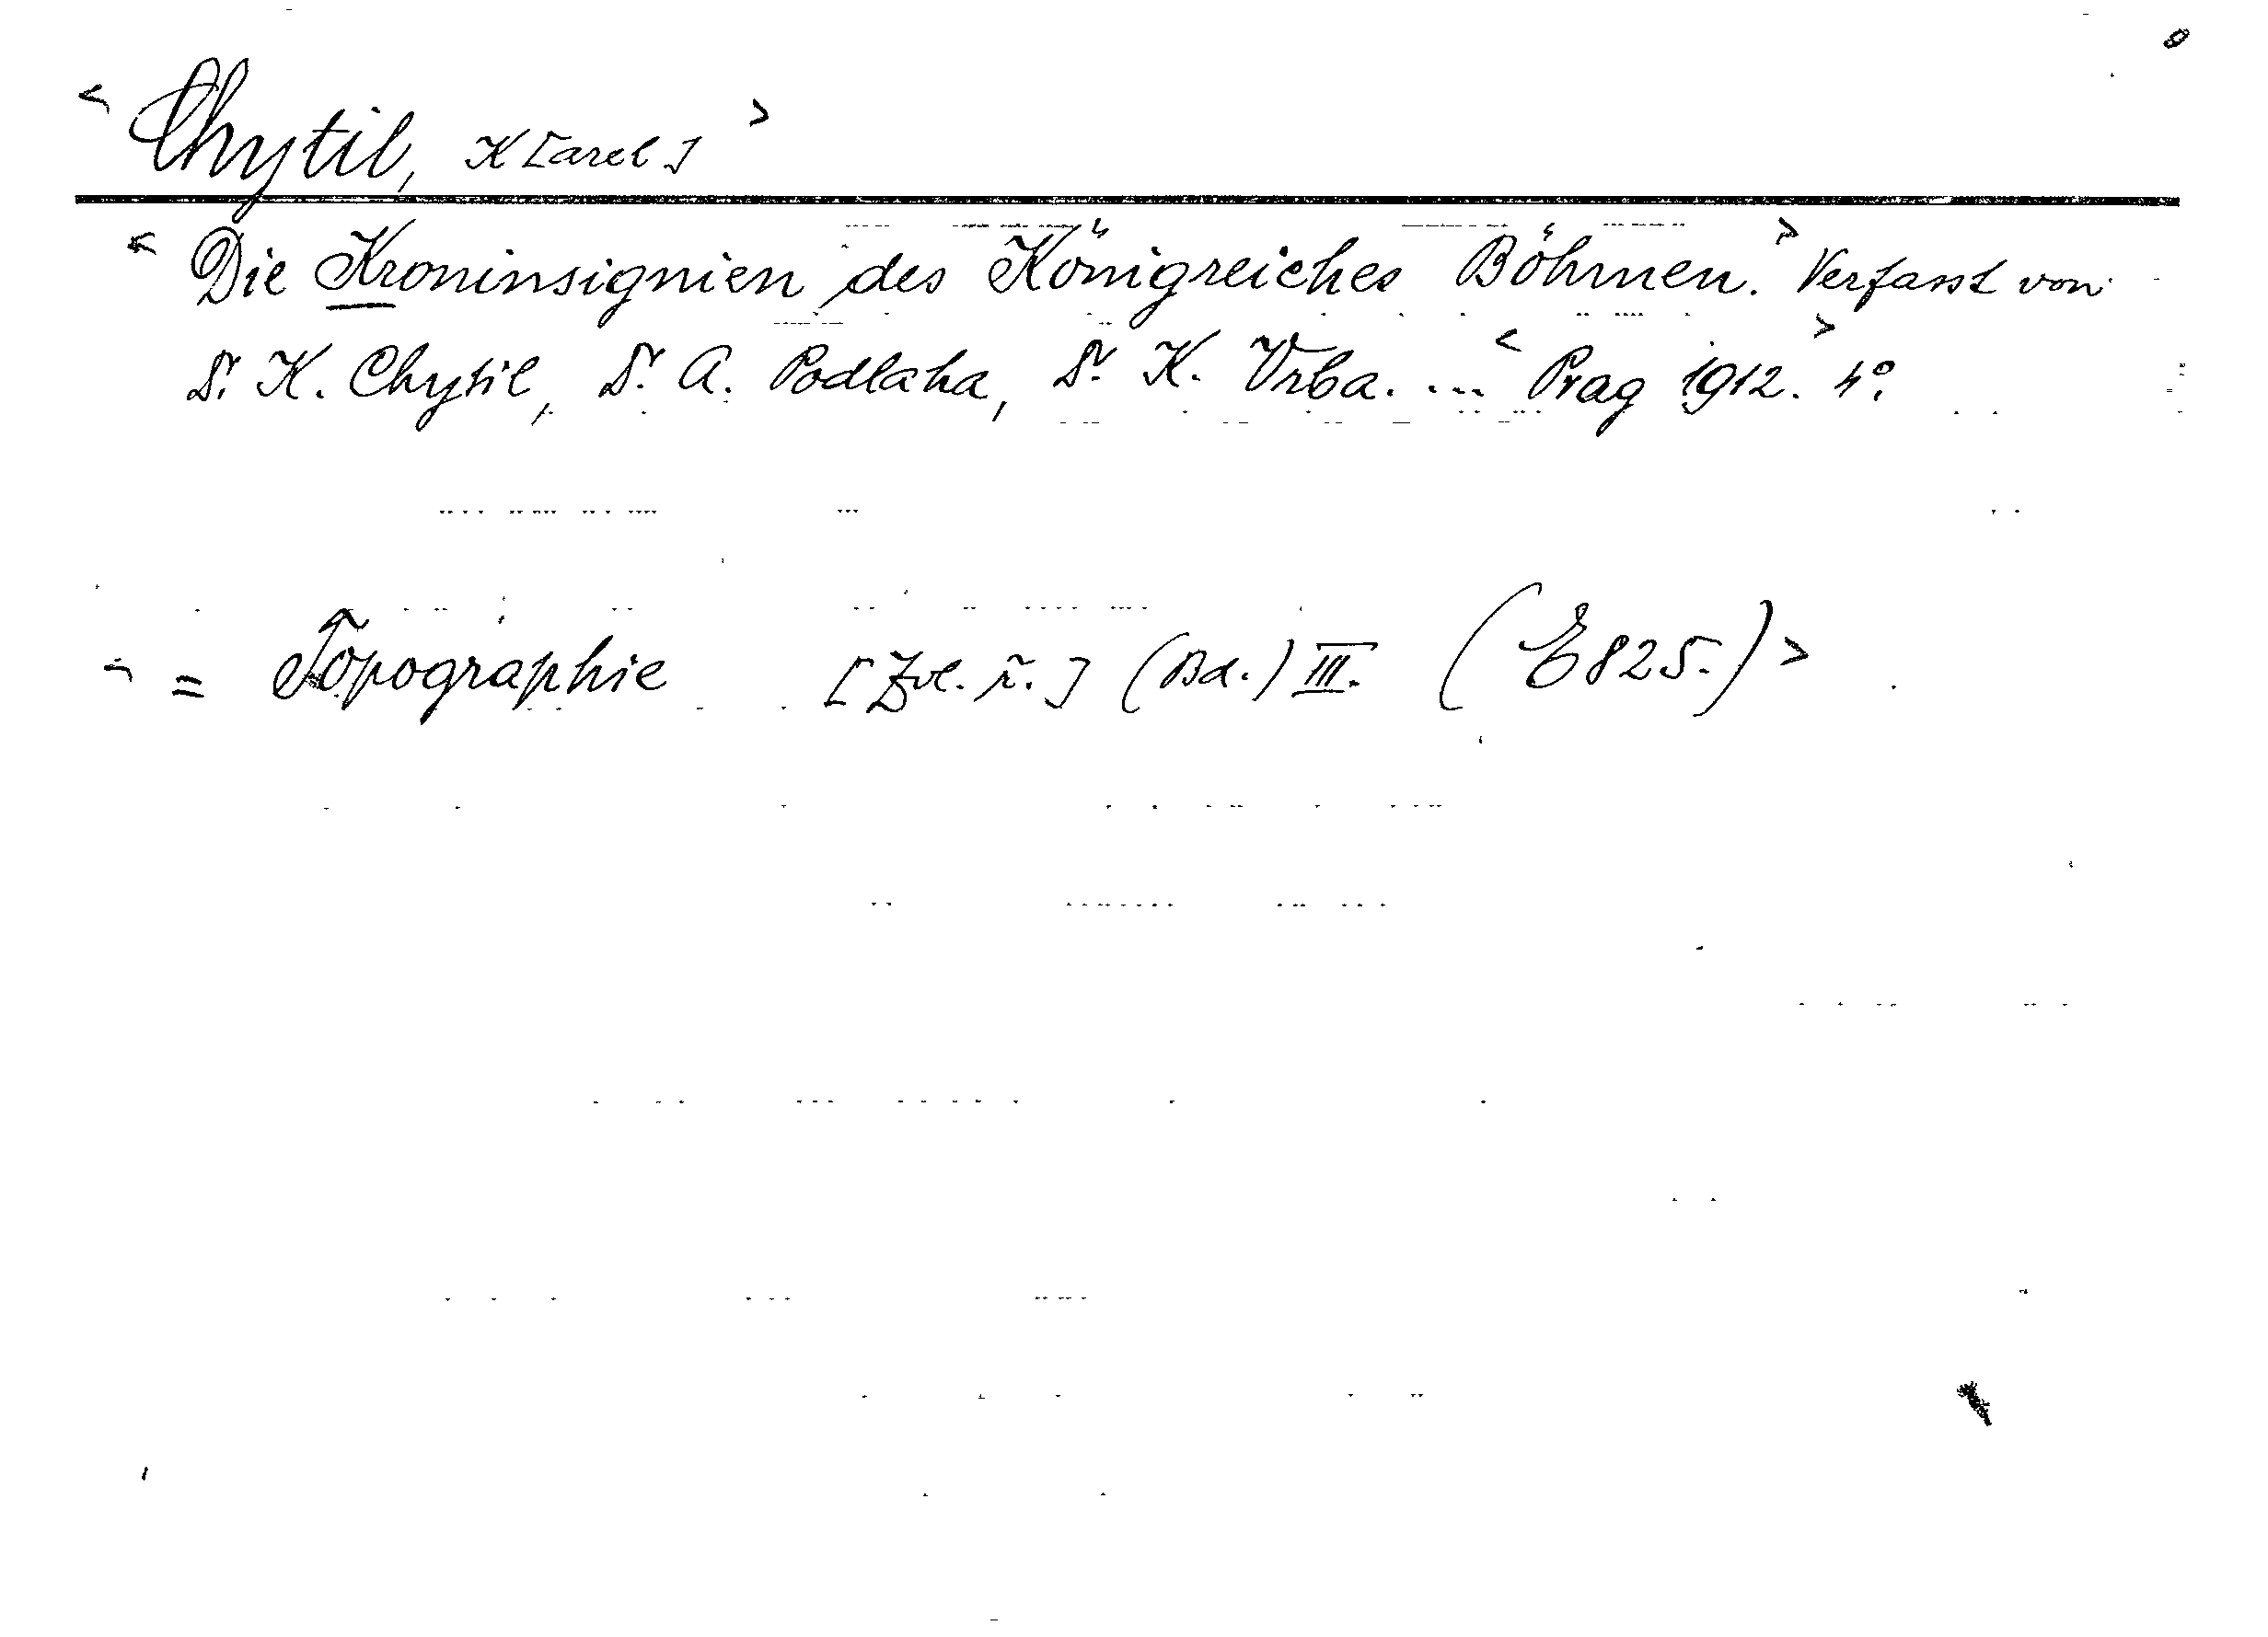 < Chytil, K[arel] >
< Die Kroninsignien des Königreiches Böhmen. > Verfasst von
Dr. K. Chytil, Dr. A. Podlaha, Dr. K. Vrba. ... < Prag 1912. > 4°.
= Topographie [Zvl. ř.] (Bd.) III. (E825.) >